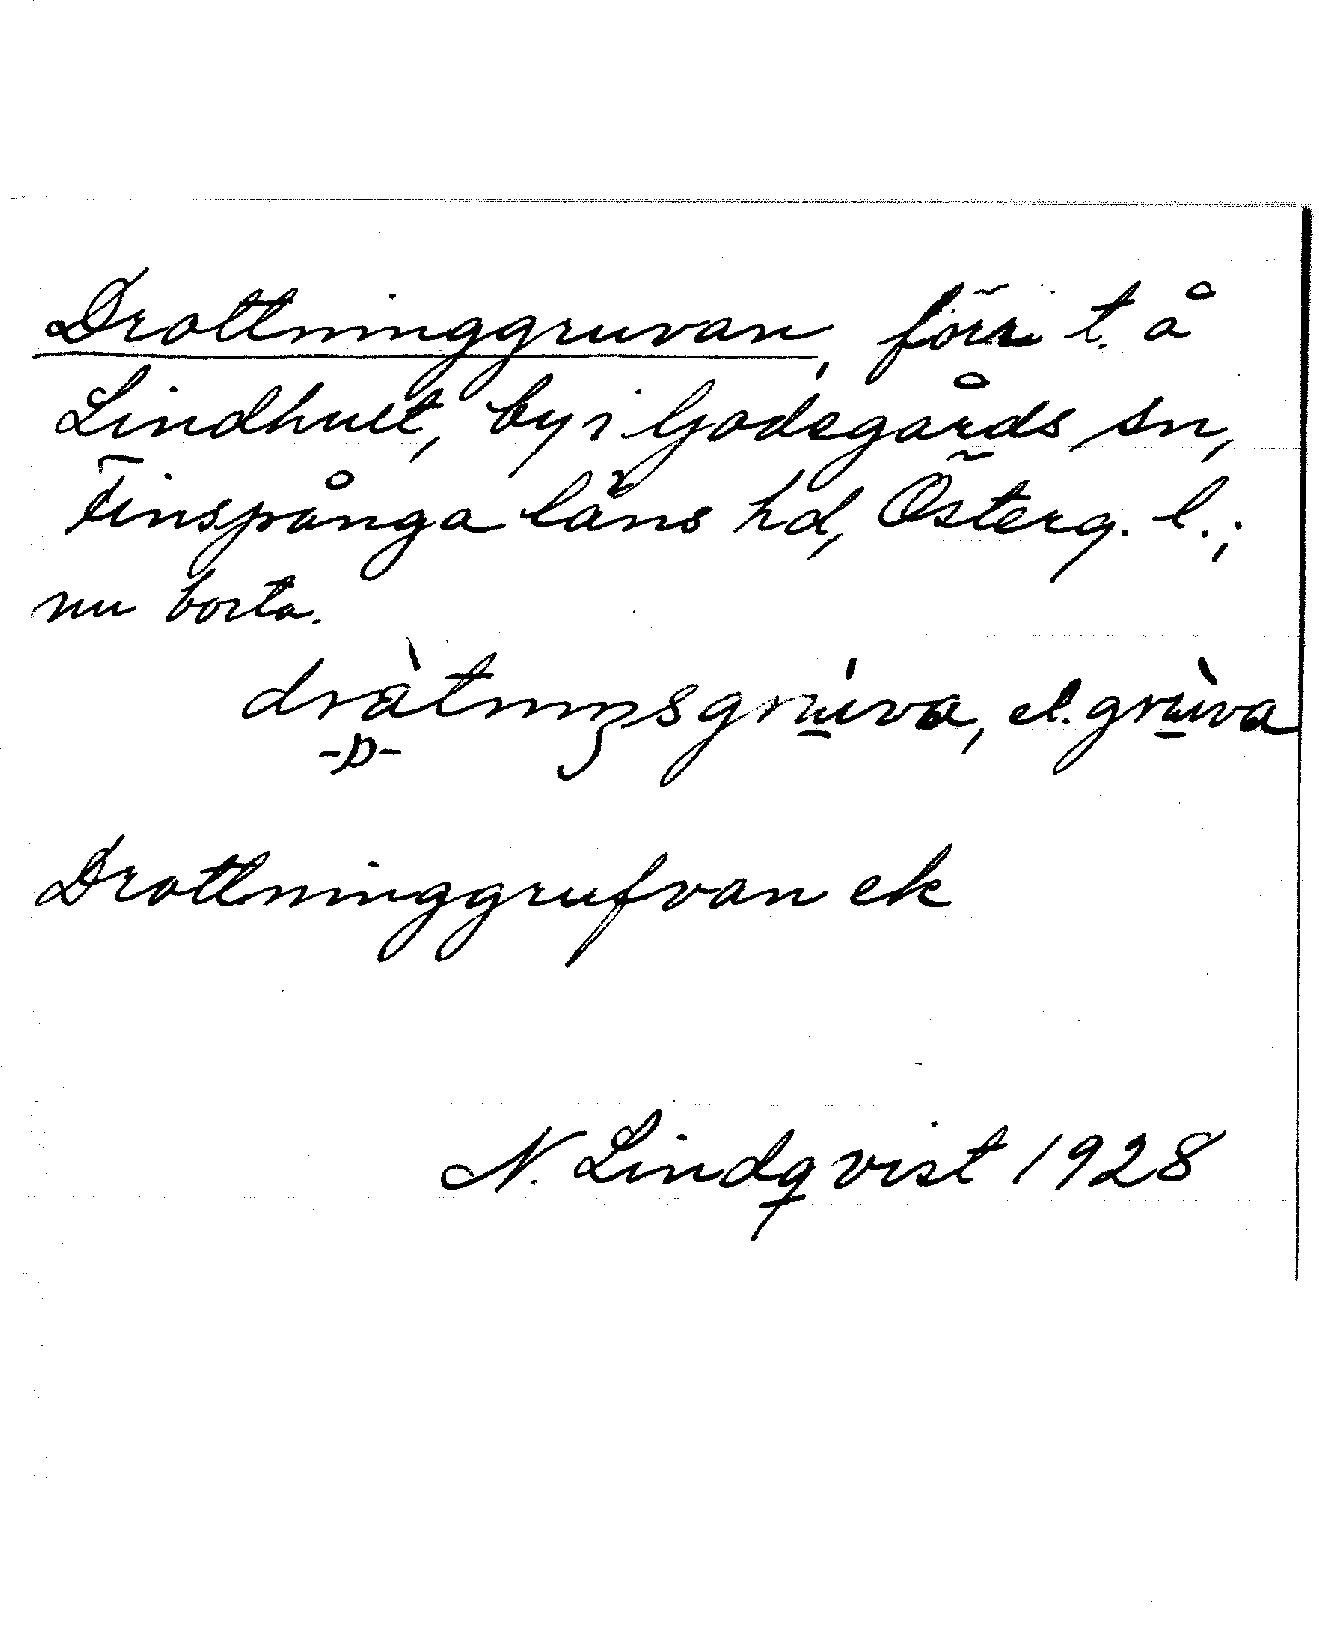 Drottninggruvan, förr t. å
Lindhult, by i Godegårds sn,
Finspånga läns hd, Österg. l.;
nu borta.
dràtnıŋsgrúva, el. grùva
-ɒ-
Drottninggrufvan ek
N. Lindqvist 1928